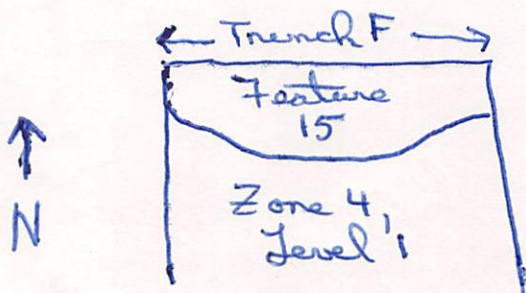 Trench F
Feature
15
N
Zone 4,
Level 1